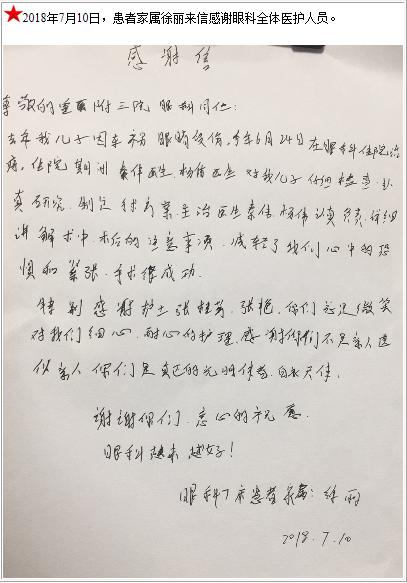 ★2018年7月10日，患者家属徐丽来信感谢眼科全体医护人员。
感谢信
尊敬的重医附三院眼科同仁:
去年我儿子因车祸眼睛受伤,今年6月24日在眼科住院治
疗。住院期间 医生、杨倩医生 对我儿子仔细检查、认
真研究、制定手术方案,主治医生 杨倩认真负责,仔细
讲解术中.术后的注意事项,减轻了我们心中的恐
惧和紧张.手术很成功.
特别感谢护士张 、张艳,你们总是微笑
对我们细心、耐心的护理,感谢你们不是亲人胜
似亲人 你们是真正的光明使者,白衣天使.
谢谢你们.衷心的祝愿
眼科越来越好!
眼科7床患者家属:徐丽
2018.7.10